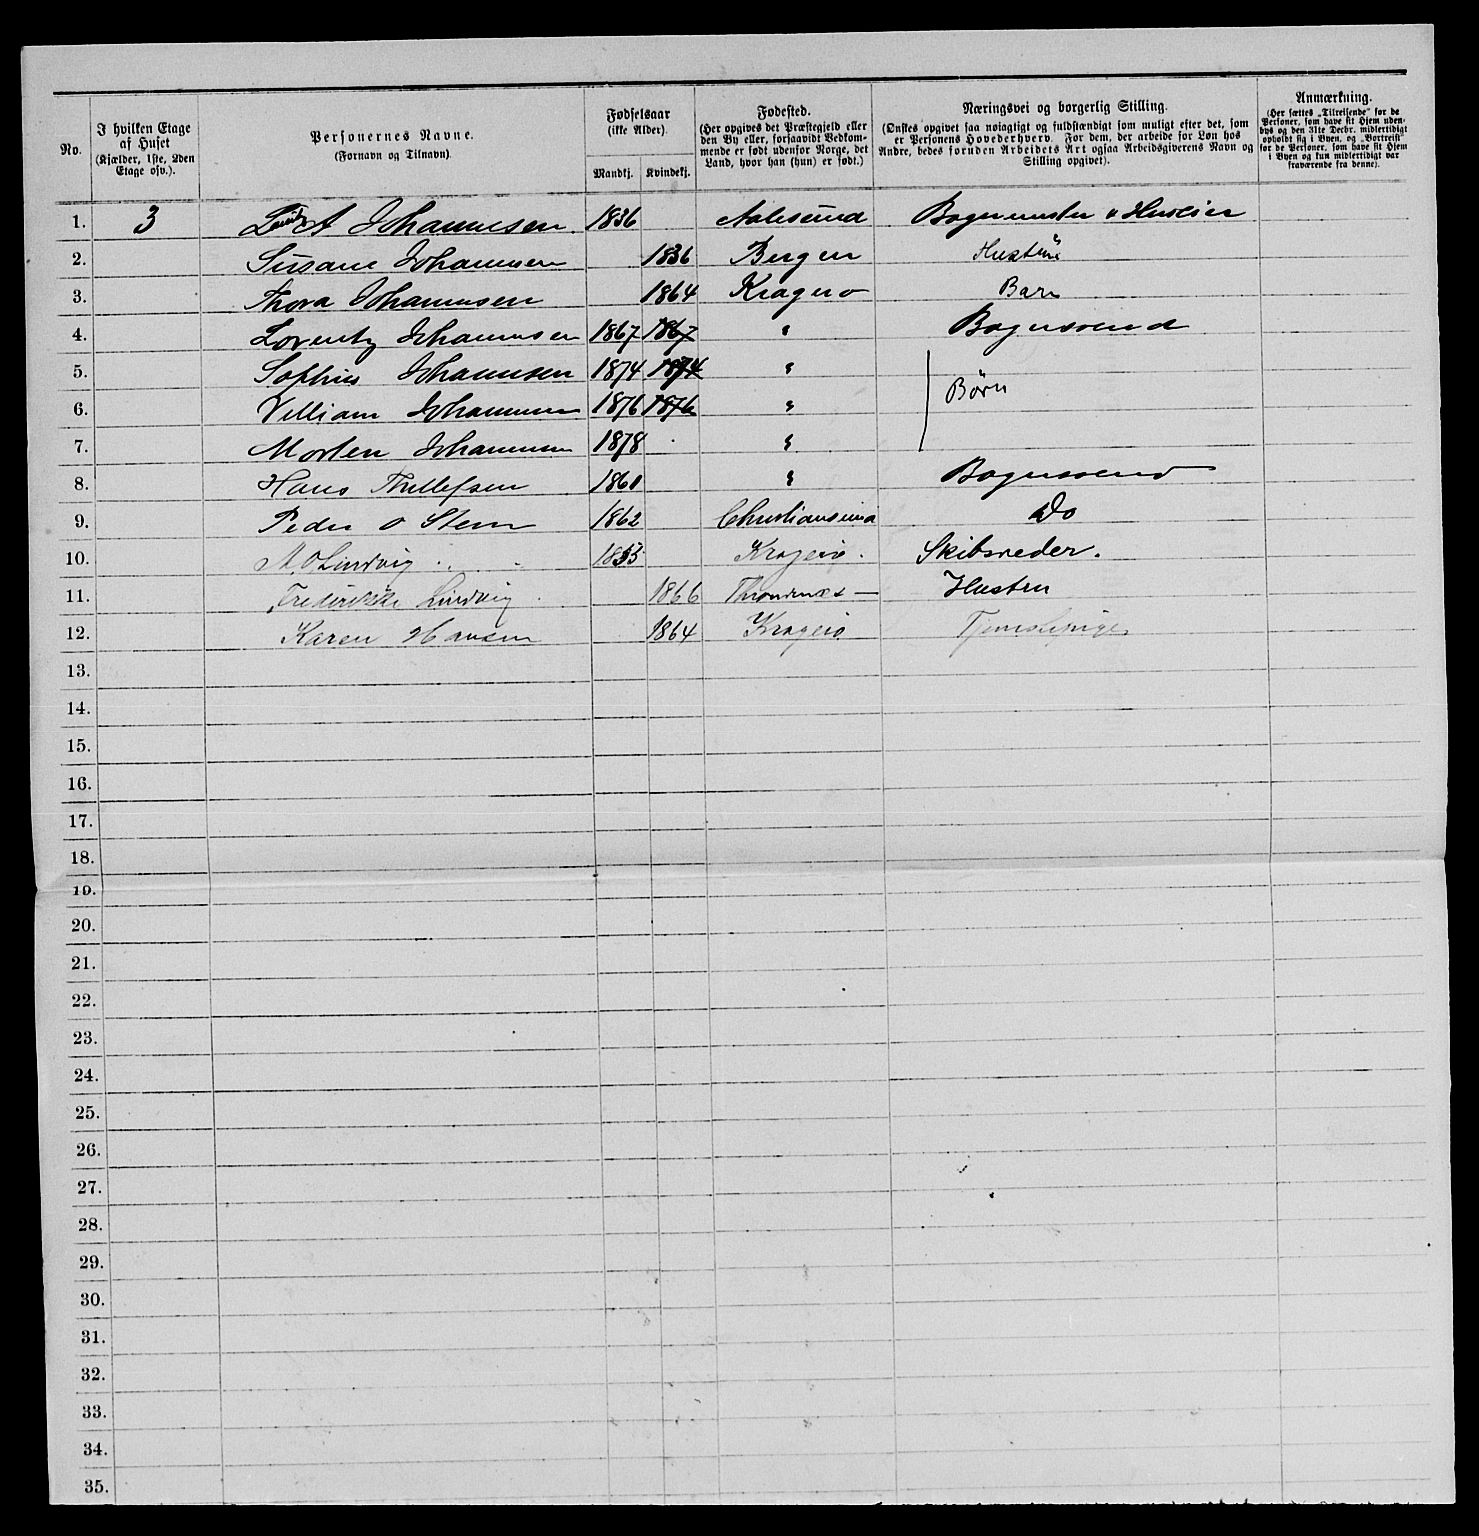 No.
I hvilken Etage af Huset (Kjælder, 1ste, 2den Etage osv.).
Personernes Navne. (Fornavn og Tilnavn)
Fødselsaar (ikke Alder). Mandkj. Kvindekj.
Fødested. (Her opgives det Præstegjeld eller den By eller, forsaavidt Vedkommende er født udenfor Norge, det Land, hvor han (hun) er født.)
Næringsvei og borgerlig Stilling. (Ønskes opgivet saa nøiagtigt og fuldstændigt som muligt efter det, som er Personens Hovederhverv. For dem, der arbeide for Løn hos Andre, bedes foruden Arbeidets Art ogsaa Arbeidsgiverens Navn og Stilling opgivet).
Anmærkning. (Her sættes „Tilreisende" for de Personer, som have sit Hjem udenbys og den 31te Decbr. midlertidigt opholdt sig i Byen, og „Bortreist" for de Personer, som have sit Hjem i Byen og kun midlertidigt var fraværende fra denne).
1. 3 A Johannesen 1836 Aalesund Bagermester & Huseier
2. Susane Johannesen 1836 Bergen Hustru
3. Thora Johannesen 1864 Kragerø Barn
4. Lorentz Johannesen 1867 1867 " Bagersvend
5. Sophus Johannesen 1874 1874 "
6. Villiam Johannesen 1876 1876 " Børn
7. Morten Johannesen 1878 "
8. Hans Thellefsen 1860 " Bagersvend
9. Peder O Steen 1862 Christiansund Do
10. M. O Lindvig 1855 Kragerø. Skibsreder.
11. Frederikke Lindvig 1866 Throndenæs — Hustru
12. Karen Hansen 1864 Kragerø Tjenestepige
13.
14.
15.
16.
17.
18.
19.
20.
21.
22.
23.
24.
25.
26.
27.
28.
29.
30.
31.
32.
33.
34.
35.